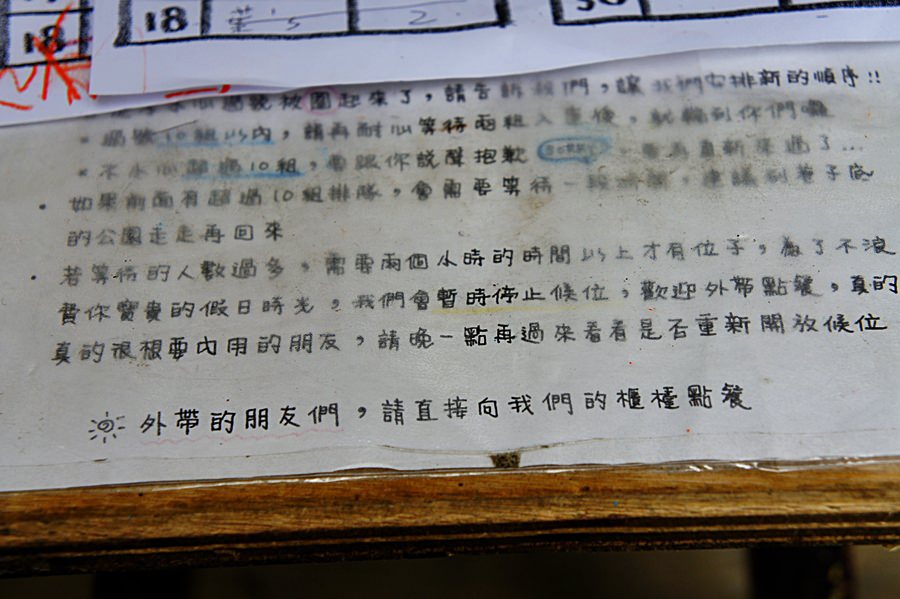 18 18 葉's 2
被圈起來了，請告訴我們，讓我們安排新的順序!!
* 過號10組以內，請再耐心等待兩組入座後，就輪到你們囉
* 不小心超過10組，會跟你說聲抱歉 重新來過了...
• 如果前面有超過10組排隊，會需要等待一段時間，建議到巷子底
的公園走走再回來
• 若等待的人數過多，需要兩個小時的時間以上才有位子，為了不浪
費你寶貴的假日時光，我們會暫時停止候位，歡迎外帶點餐，真的
真的很想要內用的朋友，請晚一點再過來看看是否重新開放候位
外帶的朋友們，請直接向我們的櫃檯點餐